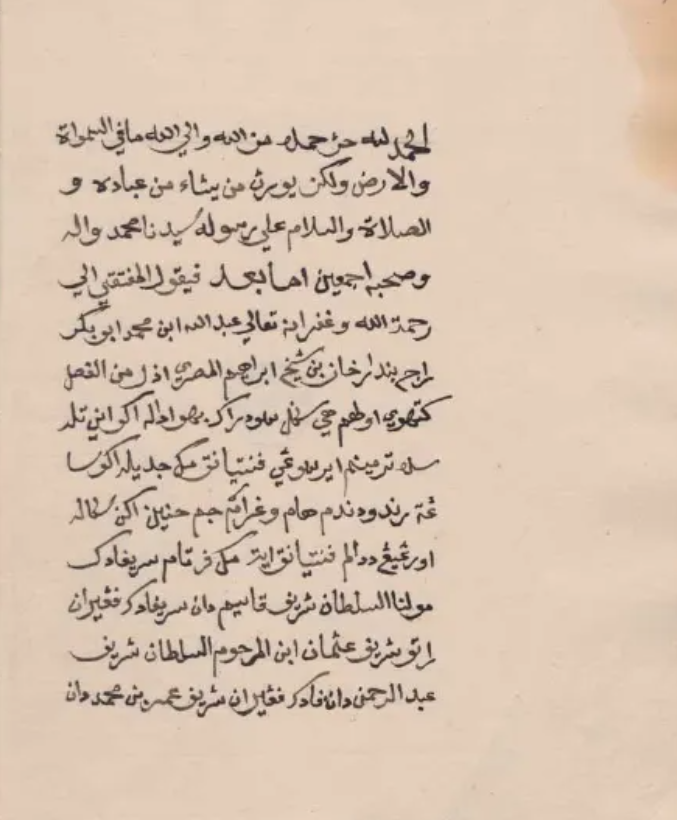 الحمد لله حق حمده من الله والي الله مافي السمواة
والارض ولكن يورث من يشاء من عباده و
الصلاة والسلام علي رسوله سيدنا محمد واله
وصحبه اجمعين اما بعد فيقول المفتقي الي
رحمة الله وغفرانه تعالي عبد الله ابن محمد ابو بكر
راج بندلرخان بن شيخ ابراهيم المصري اذل من الفصل
كتهوي اولهم حي سكل سودراك بهوا داله اكو اين تله
سده ترميم فنتيانق مك جديله اكو سا
ڠة رندو دندم هام وغرام جم حنين اكن سكاله
اورڠيڠ دوالم فنتيانق ايت مك فرتام سريفادك
مولنا السلطان شريف قاسم دان سريفادك فڠيران
راتو شريف عثمان ابن المرحوم السلطان شريف
عبد الرحمن دان فادك فڠيران شريف عمر بن محمد دان